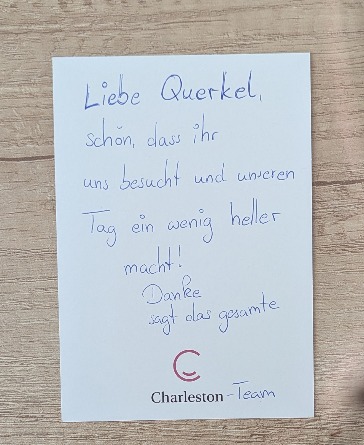 Liebe Querkel,
schön, dass ihr
uns besucht und unseren
Tag ein wenig heller
macht!
Danke
sagt das gesamte
Charleston-Team